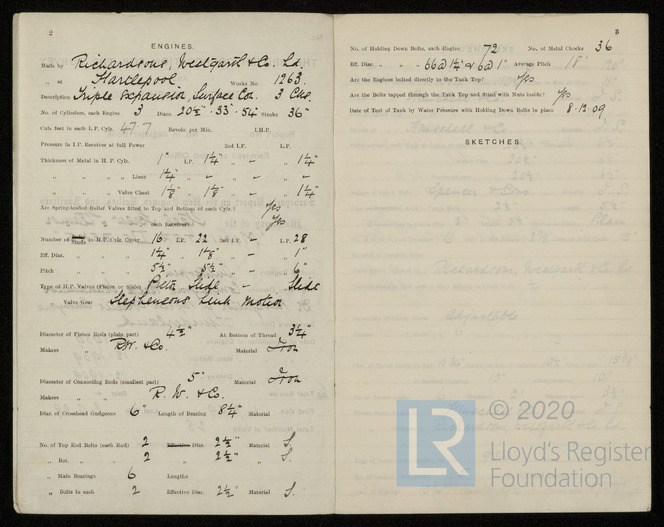 2
ENGINES.
Made by Richardsons, Westgarth & Co Ld.
„ at Hartlepool. Works No. 1263.
Description Triple Expansion, Surface Con. 3 Cyls.
No. of Cylinders, each Engine 3 Diars. 20½" - 33" - 54" Stroke 36"
Cub. feet in each L.P. Cylr. 47.7 Revols. per Min. I.H.P.
Pressure in I.P. Receiver at full Power 2nd I.P. L.P.
Thickness of Metal in H.P. Cylr. 1" I.P. 1¼" „ - „ 1¼"
„ „ „ Liner 1¼" „ - „ - „ 1¼"
„ „ Valve Chest 1⅛" „ 1⅛" „ - „ 1¼"
Are Spring-loaded Relief Valves fitted to Top and Bottom of each Cylr.? Yes
„ „ „ each Receiver? Yes
Number of Studs in H.P. Cylr. Cover 16 I.P. 22 2nd I.P. - L.P. 28
Eff. Diar. „ „ 1¼" „ 1⅛" „ - „ 1"
Pitch „ „ 5½" „ 5½" „ - „ 6"
Type of H.P. Valves (Piston or Slide) Pstn „ Slide „ - „ Slide
„ Valve Gear Stephensons Link Motion
Diameter of Piston Rods (plain part) 4½" At Bottom of Thread 3¼"
Makers R.W. & Co. Material Iron
Diameter of Connecting Rods (smallest part) 5" Material Iron
Makers R. W. & Co.
Diar. of Crosshead Gudgeons 6" Length of Bearing 8¼" Material
No. of Top End Bolts (each Rod) 2 Effective Diar. 2½" Material S.
„ Bot. „ „ 2 „ 2½" „ S.
„ Main Bearings 6 Lengths
„ Bolts in each 2 Effective Diar. 2½" Material S.
3
No. of Holding Down Bolts, each Engine 72 No. of Metal Chocks 36
Eff. Diar. „ „ 66 @ 1¼" & 6 @ 1" Average Pitch 18"
Are the Engines bolted direct to the Tank Top? Yes
Are the Bolts tapped through the Tank Top and fitted with Nuts inside? Yes
Date of Test of Tank by Water Pressure with Holding Down Bolts in place 8.12.09
SKETCHES.
LR © 2020
Lloyd's Register
Foundation